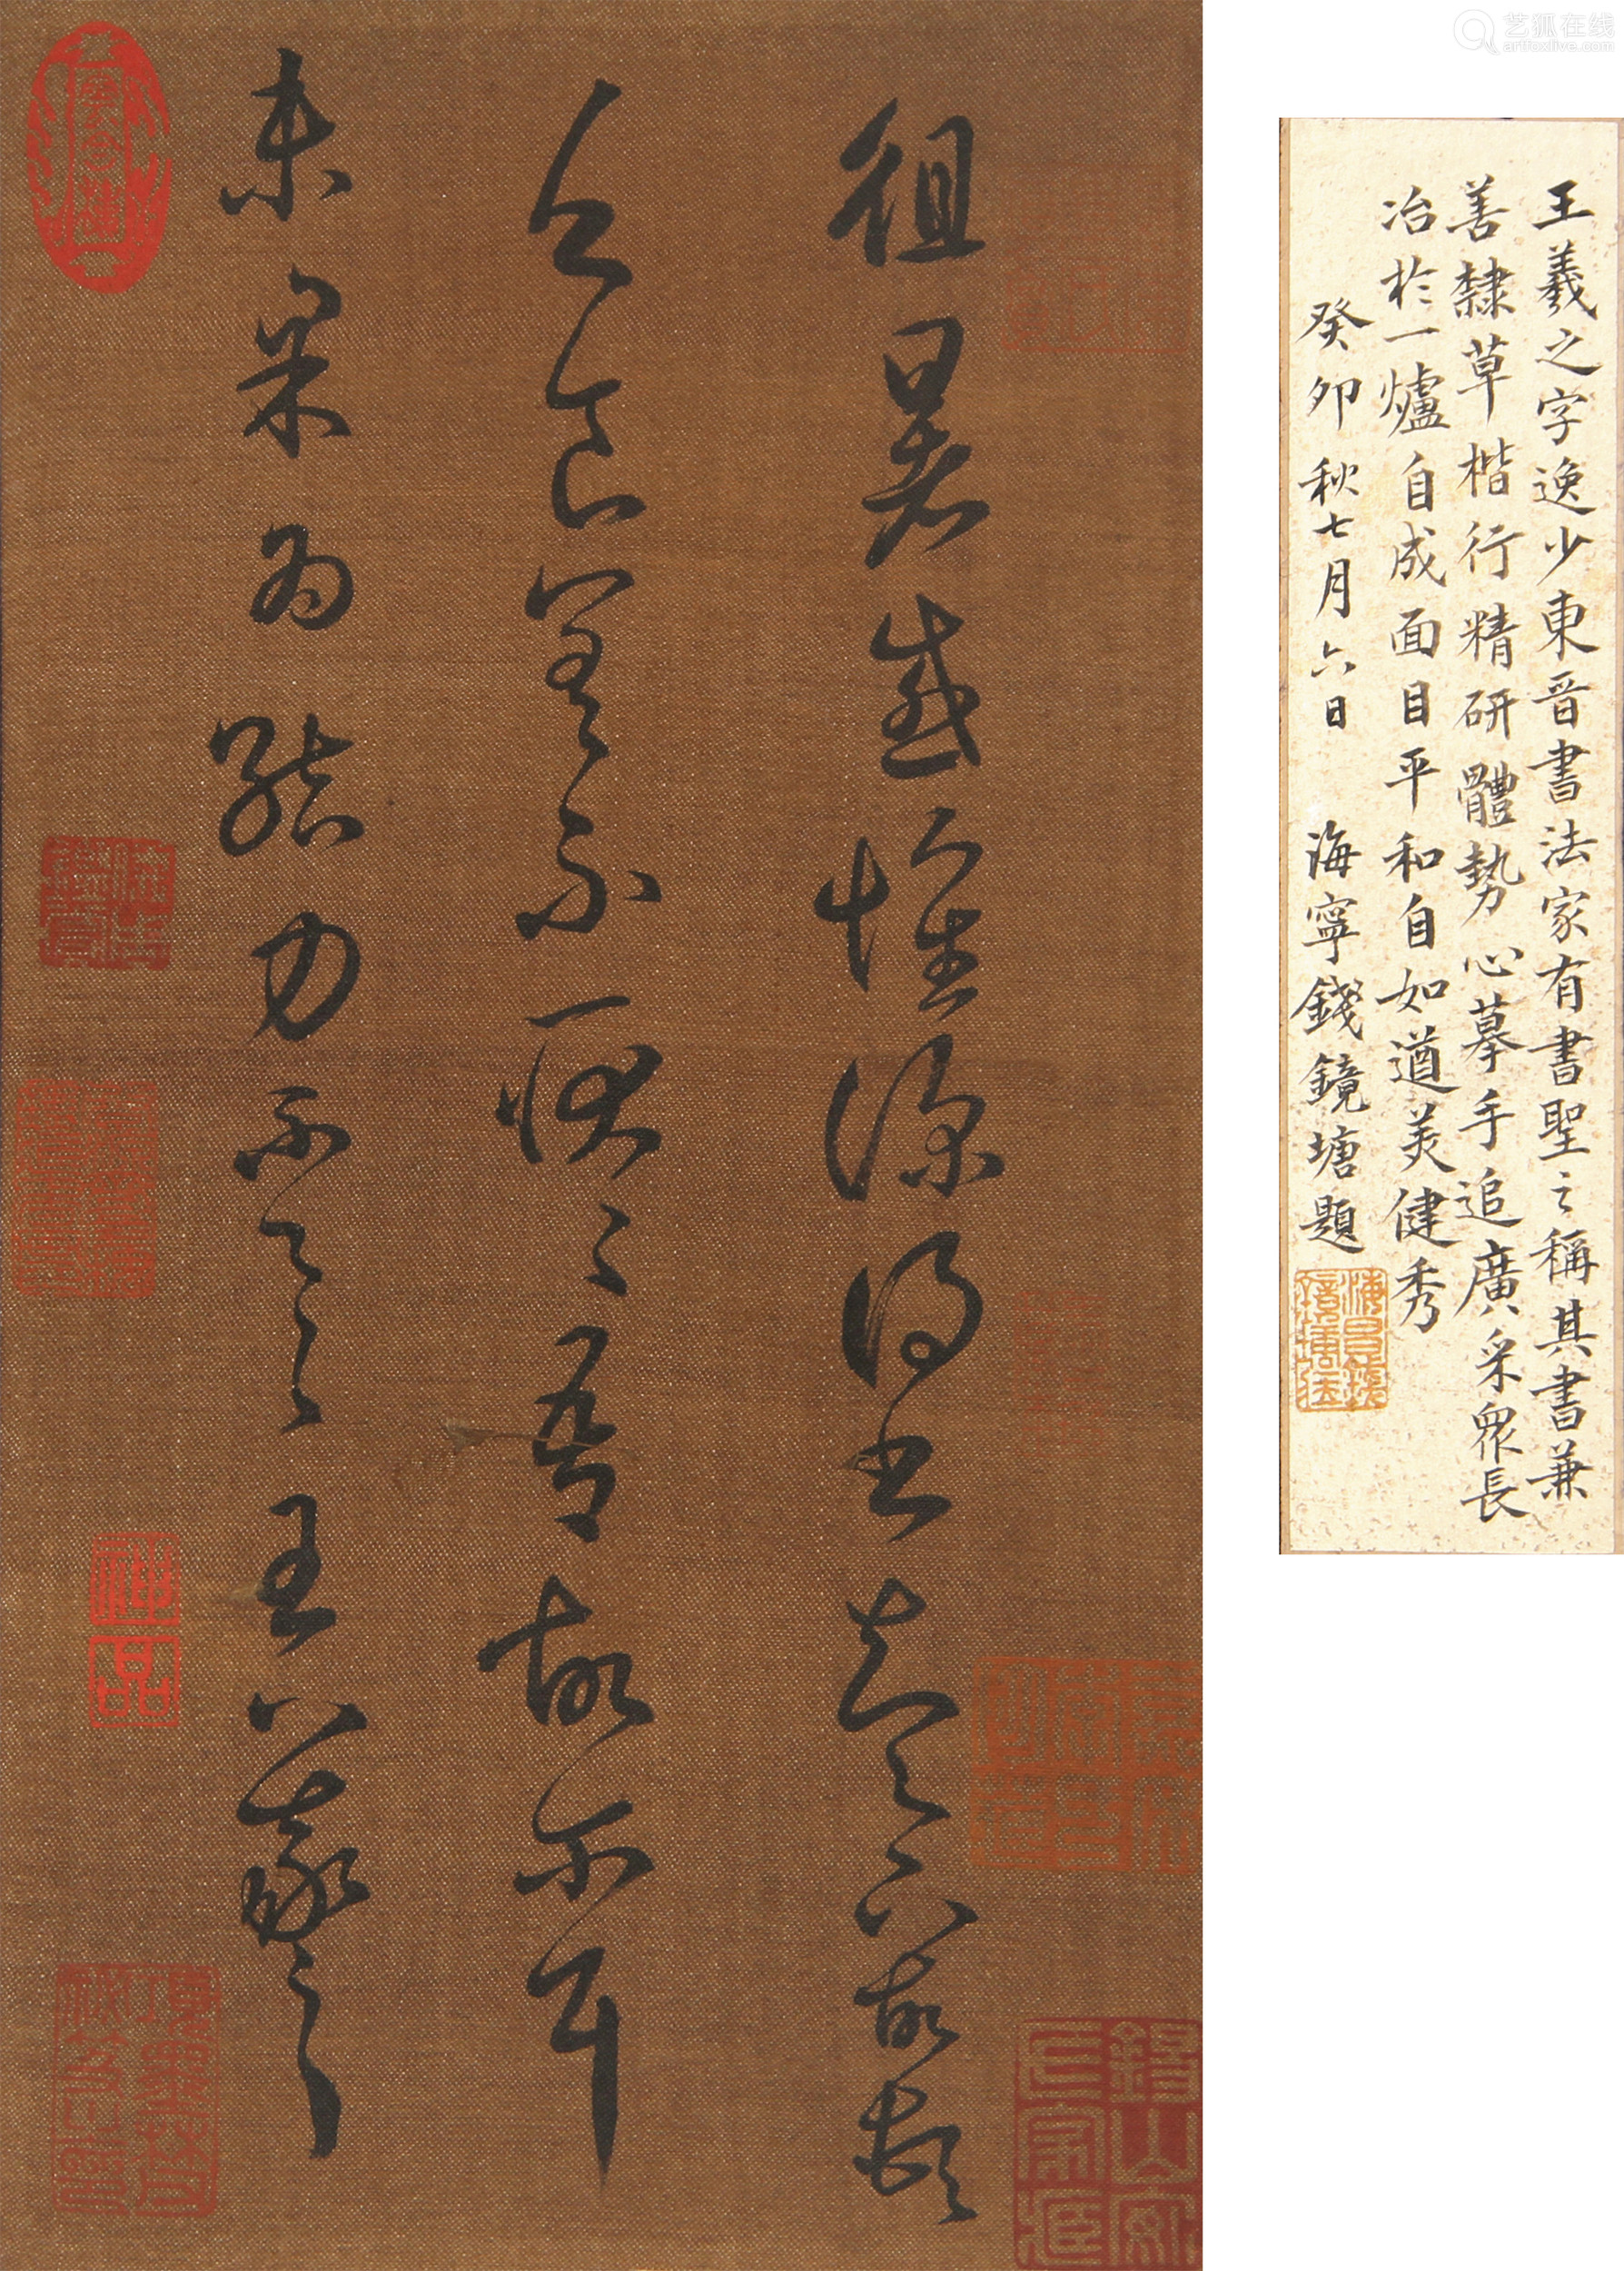 艺狐在线
artfoxlive.com
王羲之字逸少東晋書法家有書聖之稱其書兼
善隸草楷行精研體勢心摹手追廣采眾長
冶於一爐自成面目平和自如遒美健秀
癸卯秋七月六日 海寧錢鏡塘題
徂暑感懷深得書知足下故頓
乏食差不吾故尔耳
未果為結力不具王羲之
神品